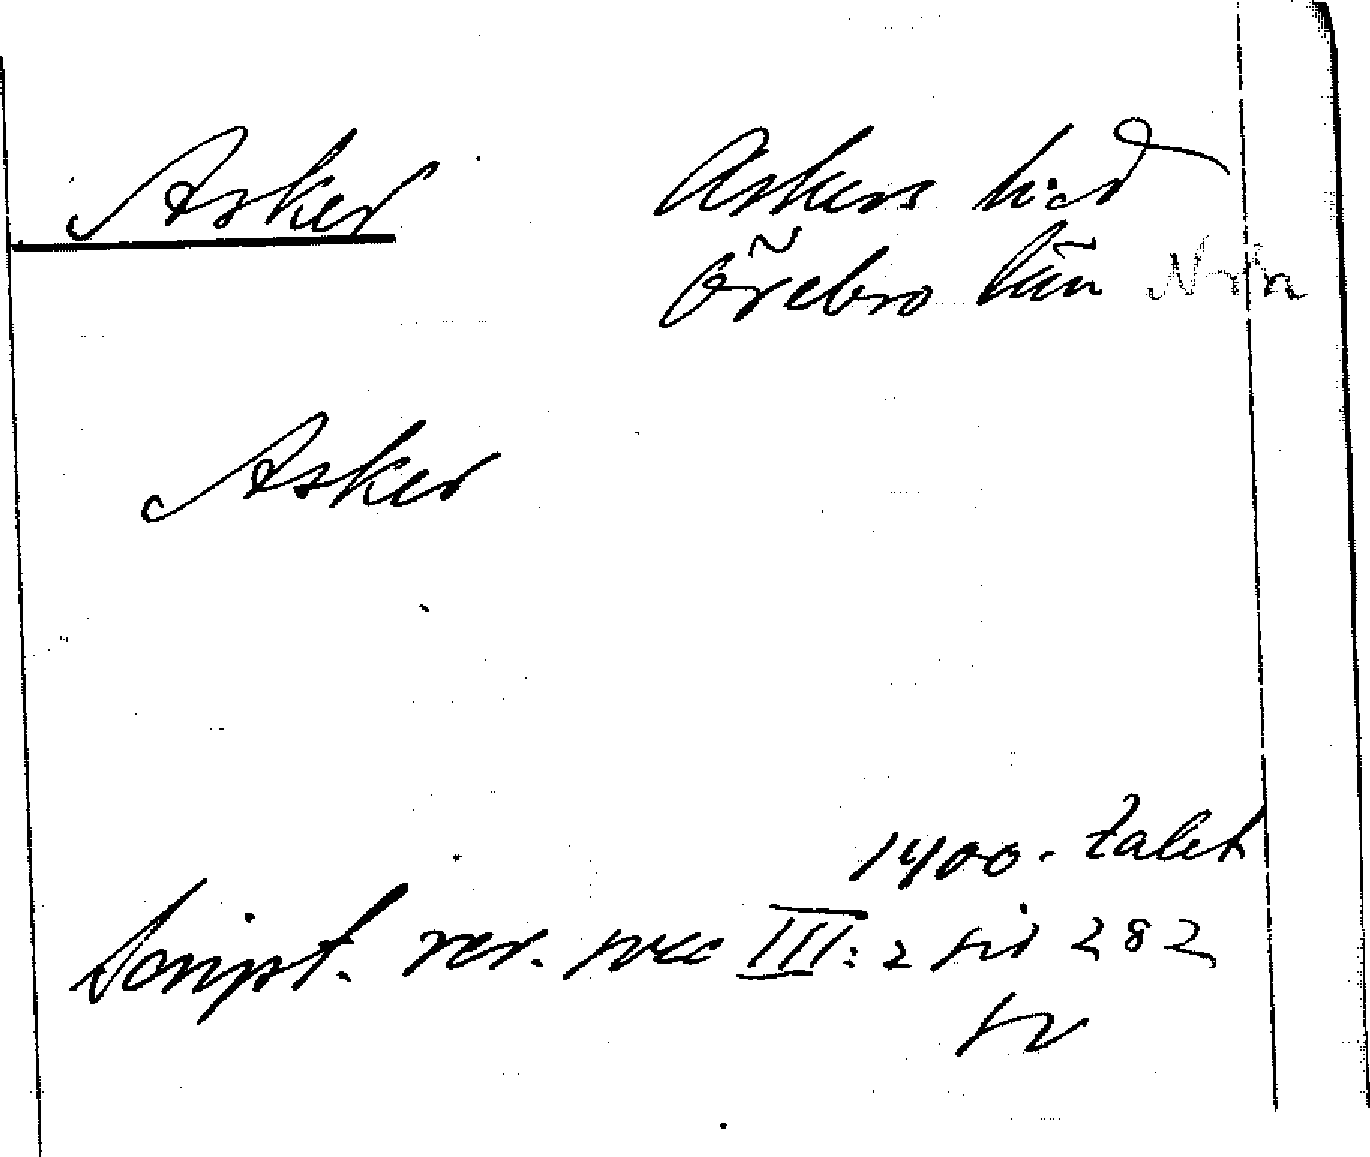 Asker Askers h:d
Örebro län Nrk
Asker
1400-talet
Script. rer. svec III:2 sid 282
sv